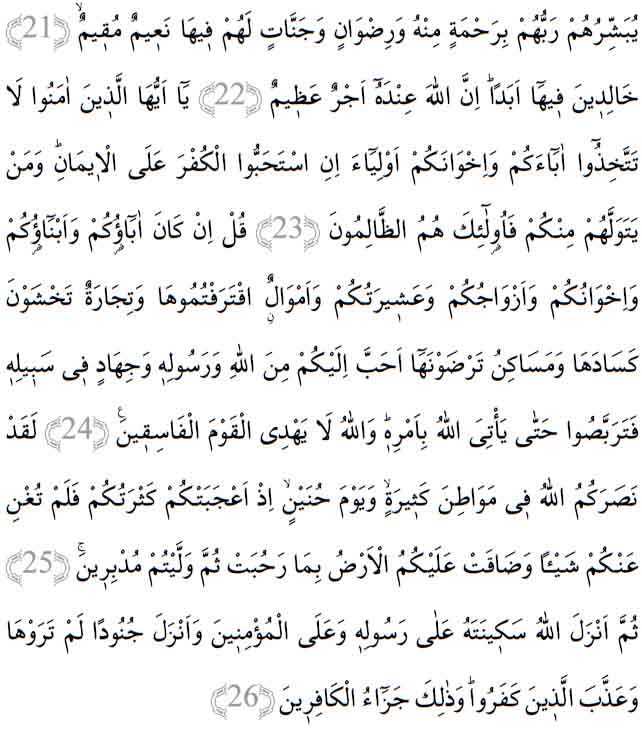 يُبَشِّرُهُمْ رَبُّهُمْ بِرَحْمَةٍ مِنْهُ وَرِضْوَانٍ وَجَنَّاتٍ لَهُمْ فٖيهَا نَعٖيمٌ مُقٖيمٌۙ ﴿21﴾
خَالِدٖينَ فٖيهَٓا اَبَدًاؕ اِنَّ اللّٰهَ عِنْدَهُٓ اَجْرٌ عَظٖيمٌ ﴿22﴾ يَٓا اَيُّهَا الَّذٖينَ اٰمَنُوا لَا
تَتَّخِذُٓوا اٰبَٓاءَكُمْ وَاِخْوَانَكُمْ اَوْلِيَٓاءَ اِنِ اسْتَحَبُّوا الْكُفْرَ عَلَى الْاٖيمَانِؕ وَمَنْ
يَتَوَلَّهُمْ مِنْكُمْ فَاُو۬لٰٓئِكَ هُمُ الظَّالِمُونَ ﴿23﴾ قُلْ اِنْ كَانَ اٰبَٓاؤُ۬كُمْ وَاَبْنَٓاؤُ۬كُمْ
وَاِخْوَانُكُمْ وَاَزْوَاجُكُمْ وَعَشٖيرَتُكُمْ وَاَمْوَالٌۨ اقْتَرَفْتُمُوهَا وَتِجَارَةٌ تَخْشَوْنَ
كَسَادَهَا وَمَسَاكِنُ تَرْضَوْنَهَٓا اَحَبَّ اِلَيْكُمْ مِنَ اللّٰهِ وَرَسُولِهٖ وَجِهَادٍ فٖى سَبٖيلِهٖ
فَتَرَبَّصُوا حَتّٰى يَأْتِىَ اللّٰهُ بِاَمْرِهٖؕ وَاللّٰهُ لَا يَهْدِى الْقَوْمَ الْفَاسِقٖينَࣖ ﴿24﴾ لَقَدْ
نَصَرَكُمُ اللّٰهُ فٖى مَوَاطِنَ كَثٖيرَةٍۙ وَيَوْمَ حُنَيْنٍۙ اِذْ اَعْجَبَتْكُمْ كَثْرَتُكُمْ فَلَمْ تُغْنِ
عَنْكُمْ شَيْـًٔا وَضَاقَتْ عَلَيْكُمُ الْاَرْضُ بِمَا رَحُبَتْ ثُمَّ وَلَّيْتُمْ مُدْبِرٖينَۚ ﴿25﴾
ثُمَّ اَنْزَلَ اللّٰهُ سَكٖينَتَهُ عَلٰى رَسُولِهٖ وَعَلَى الْمُؤْمِنٖينَ وَاَنْزَلَ جُنُودًا لَمْ تَرَوْهَا
وَعَذَّبَ الَّذٖينَ كَفَرُواؕ وَذٰلِكَ جَزَٓاءُ الْكَافِرٖينَ ﴿26﴾